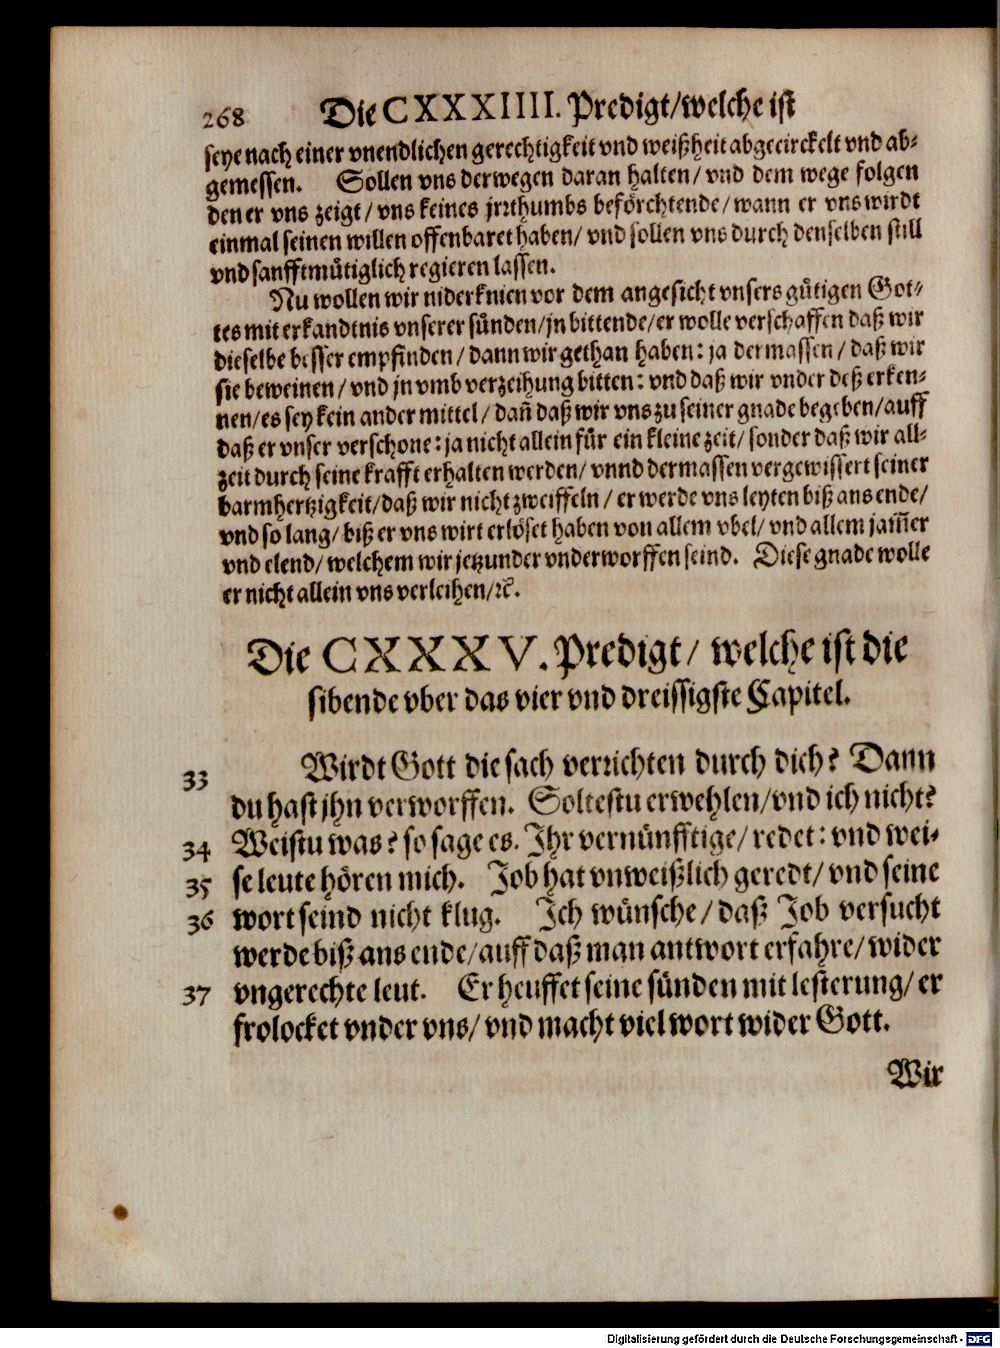 268 Die CXXXIIII. Predigt/welche ist
seye nach einer vnendlichen gerechtigkeit vnd weißheit abgecirckelt vnd ab-
gemessen. Sollen vns derwegen daran halten/ vnd dem wege folgen
den er vns zeigt/ vns keines jrrthumbs beförchtende/ wann er vns wirdt
einmal seinen willen offenbaret haben/ vnd sollen vns durch denselben still
vnd sanfftmütiglich regieren lassen.
Nu wollen wir niderknien vor dem angesicht vnsers gütigen Got-
tes mit erkandtnis vnserer sünden/jn bittende/er wolle verschaffen daß wir
dieselbe besser empfinden/ dann wir gethan haben: ja dermassen/ daß wir
sie beweinen/ vnd jn vmb verzeihung bitten: vnd daß wir vnder deß erken-
nen/es sey kein ander mittel/ dañ daß wir vns zu seiner gnade begeben/auff
daß er vnser verschone: ja nicht allein für ein kleine zeit/ sonder daß wir all-
zeit durch seine krafft erhalten werden/ vnnd dermassen vergewissert seiner
barmhertzigkeit/daß wir nicht zweiffeln/ er werde vns leyten biß ans ende/
vnd so lang/ biß er vns wirt erlöset haben von allem vbel/ vnd allem jam̃er
vnd elend/ welchem wir jetzunder vnderworffen seind. Diese gnade wolle
er nicht allein vns verleihen/ꝛc.
Die CXXXV. Predigt/ welche ist die
sibende vber das vier vnd dreissigste Capitel.
33 Wirdt Gott die sach verrichten durch dich? Dann
du hast jhn verworffen. Soltestu erwehlen/vnd ich nicht?
34 Weistu was? so sage es. Ihr vernünfftige/ redet: vnd wei-
35 se leute hören mich. Job hat vnweißlich geredt/ vnd seine
36 wort seind nicht klug. Ich wünsche/ daß Job versucht
werde biß ans ende/auff daß man antwort erfahre/ wider
37 vngerechte leut. Er heuffet seine sünden mit lesterung/ er
frolocket vnder vns/ vnd macht viel wort wider Gott.
Wir
Digitalisierung gefördert durch die Deutsche Forschungsgemeinschaft - DFG